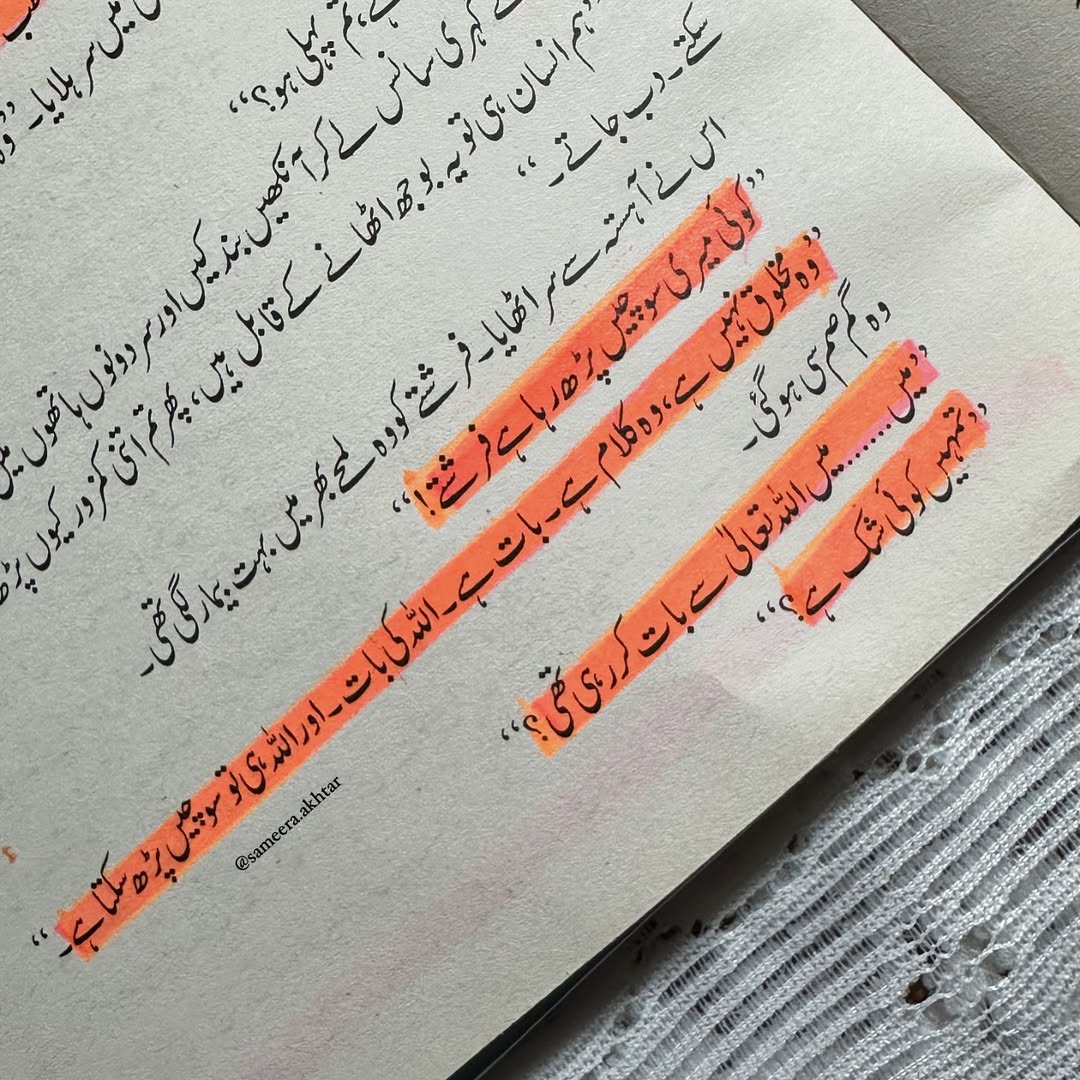 میں سر ہلایا۔ ”وہ
ہے، تم پہلی ہو؟“
گہری سانس لے کر آنکھیں بند کیں اور سر دونوں ہاتھوں میں
ہم انسان ہی تو یہ بوجھ اٹھانے کے قابل ہیں، پھر تم اتنی کمزور کیوں پڑ
سکتے۔ دب جاتے۔“
اس نے آہستہ سے سر اٹھایا۔ فرشتے کو وہ لمحے بھر میں بہت بیمار لگی تھی۔
”کوئی میری سوچیں پڑھ رہا ہے فرشتے!“
”وہ مخلوق نہیں ہے، وہ کلام ہے۔ بات ہے۔ اللہ کی بات۔ اور اللہ ہی تو سوچیں پڑھ سکتا ہے۔“
وہ گم صم سی ہو گئی۔
”میں ........ میں اللہ تعالیٰ سے بات کر رہی تھی؟“
”تمہیں کوئی شک ہے؟“
@sameera.akhtar